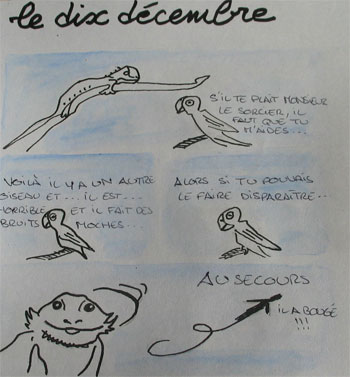 le dix décembre
S'IL TE PLAÎT MONSIEUR
LE SORCIER, IL
FAUT QUE TU
M'AIDES...
VOILÀ IL Y A UN AUTRE
OISEAU ET... IL EST...
HORRIBLE ET IL FAIT DES
BRUITS MOCHES...
ALORS SI TU POUVAIS
LE FAIRE DISPARAÎTRE...
AU SECOURS
IL A BOUGÉ
!!!